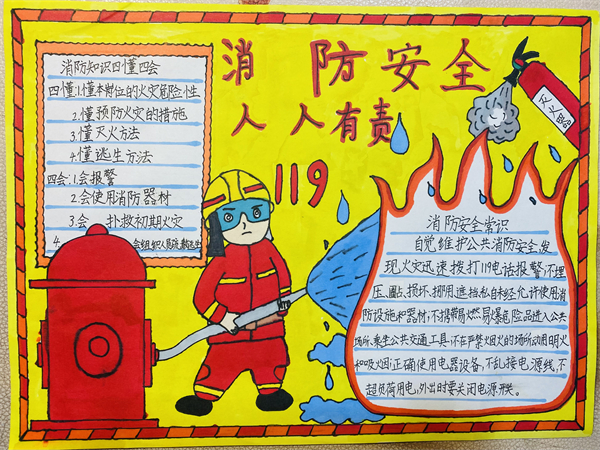 消防安全
人人有责
119
灭火器
消防知识四懂四会
四懂:1.懂本岗位的火灾危险性
2.懂预防火灾的措施
3.懂灭火方法
4.懂逃生方法
四会:1.会报警
2.会使用消防器材
3.会 扑救初期火灾
4. 会组织人员疏散逃生
消防安全常识
自觉维护公共消防安全,发
现火灾迅速拨打119电话报警,不埋
压、圈占、损坏、挪用、遮挡私自未经允许使用消
防设施和器材;不携带易燃易爆危险品进入公共
场所、乘坐公共交通工具;不在严禁烟火的场所动用明火
和吸烟;正确使用电器设备,不乱接电源线,不
超负荷用电,外出时要关闭电源开关。